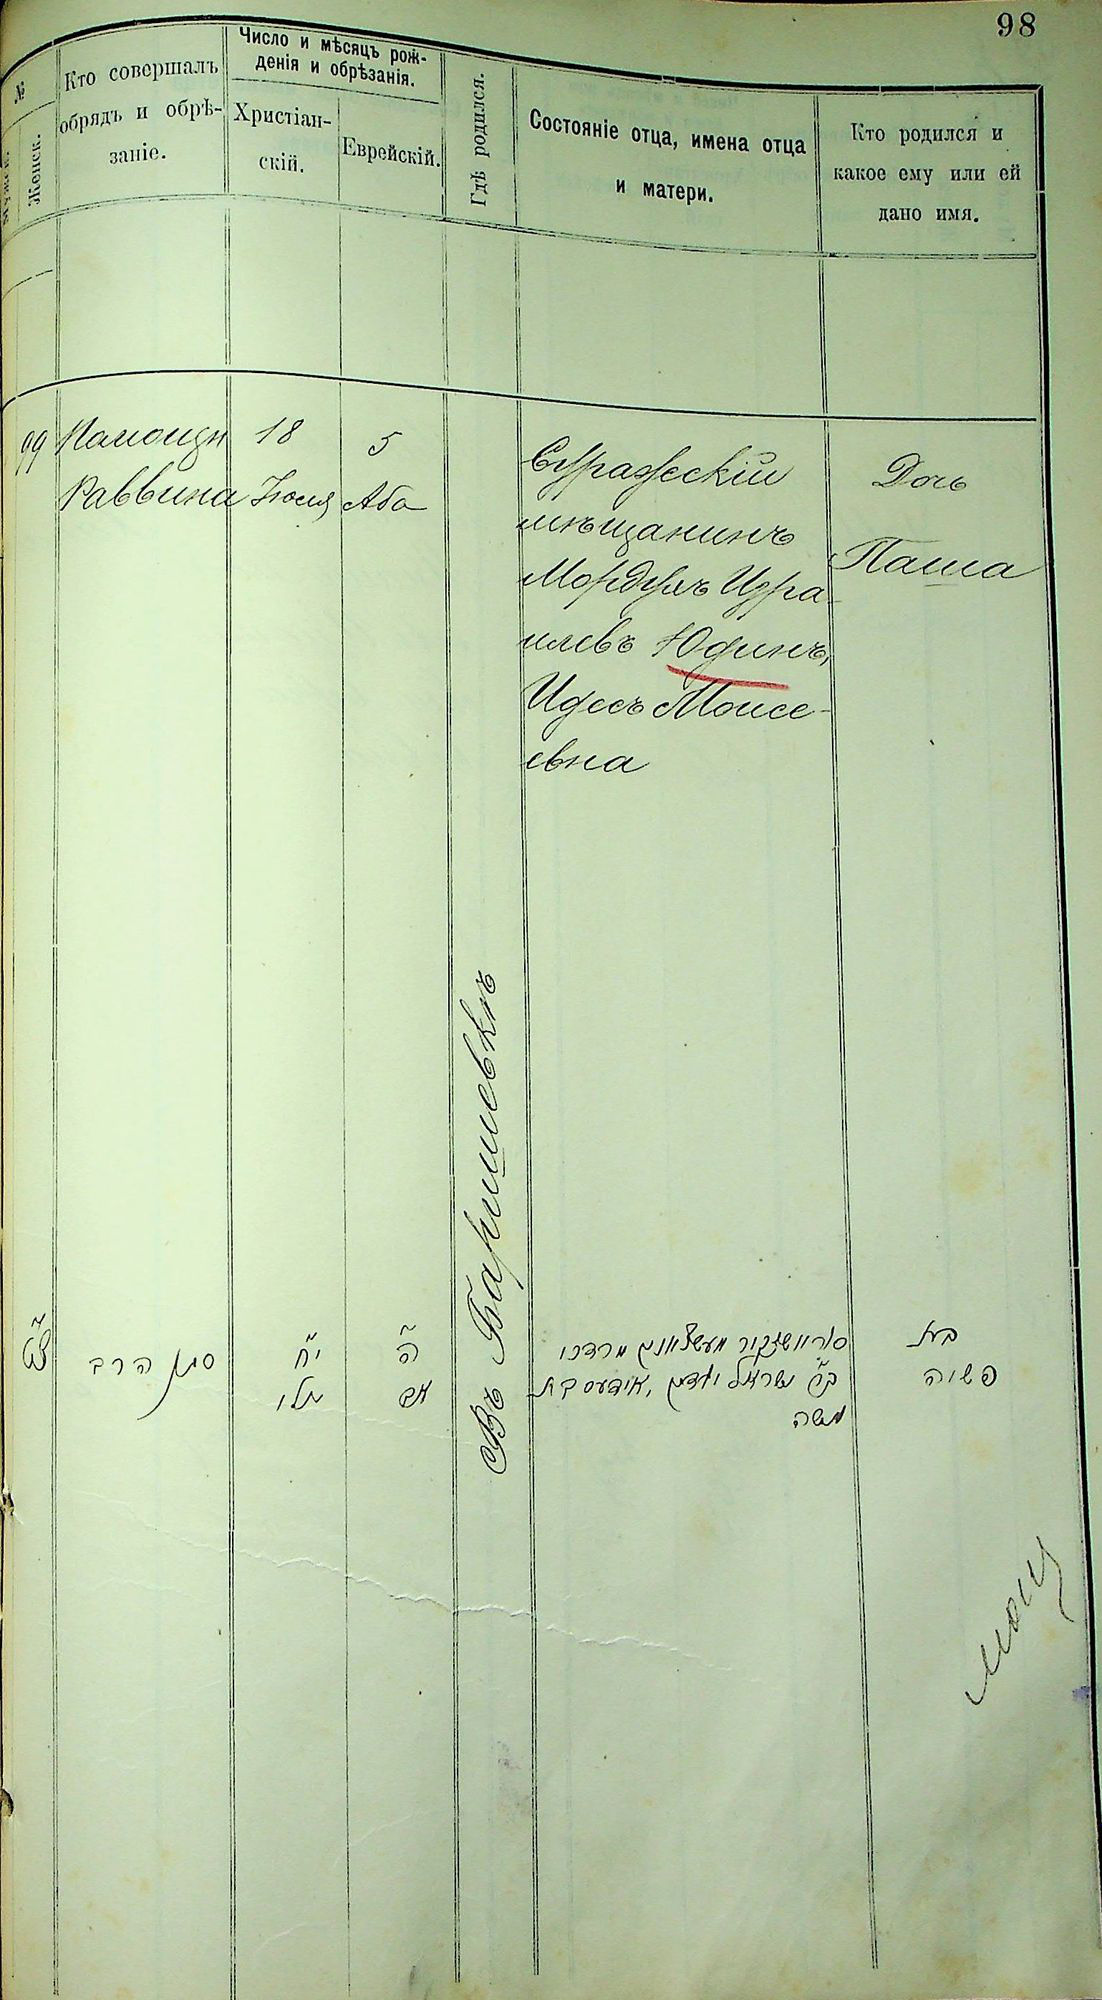 98
№
Мужск.
Женск.
Кто совершалъ
обрядъ и обрѣ-
заніе.
Число и мѣсяцъ рож-
денія и обрѣзанія.
Христіан-
скій.
Еврейскій.
Гдѣ родился.
Состояніе отца, имена отца
и матери.
Кто родился и
какое ему или ей
дано имя.
99
Помощн
Раввина
18
Іюля
5
Аба
Въ Баришевкѣ
Суражскій
мѣщанинъ
Мордухъ Изра-
илевъ Юдинъ,
Идесъ Моисе-
евна
Дочь
Паша
סגן הרב
י״ח
יולי
ה׳
אב
מרדכי
ישראל יודין, אידעס בת
משה
בת
פשיה